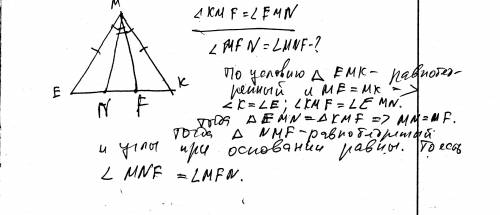 M
E N F K
∠KMF = ∠EMN
∠MFN = ∠MNF - ?
По условию △ EMK - равнобед-
ренный и ME = MK =>
∠K = ∠E; ∠KMF = ∠EMN.
Тогда △EMN = △KMF => MN = MF.
Тогда △ NMF - равнобедренный
и углы при основании равны. То есть
∠ MNF = ∠MFN.